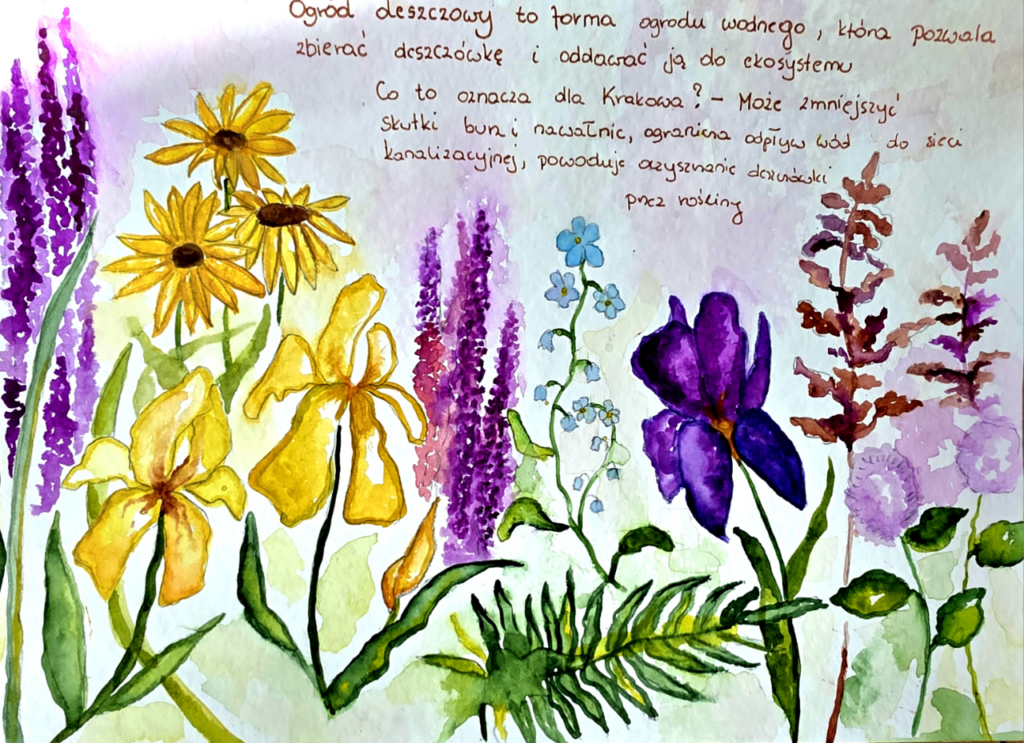 Ogród deszczowy to forma ogrodu wodnego, która pozwala
zbierać deszczówkę i oddawać ją do ekosystemu
Co to oznacza dla Krakowa? – Może zmniejszyć
skutki burz i nawałnic, ogranicza odpływ wód do sieci
kanalizacyjnej, powoduje oczyszczanie deszczówki
przez rośliny